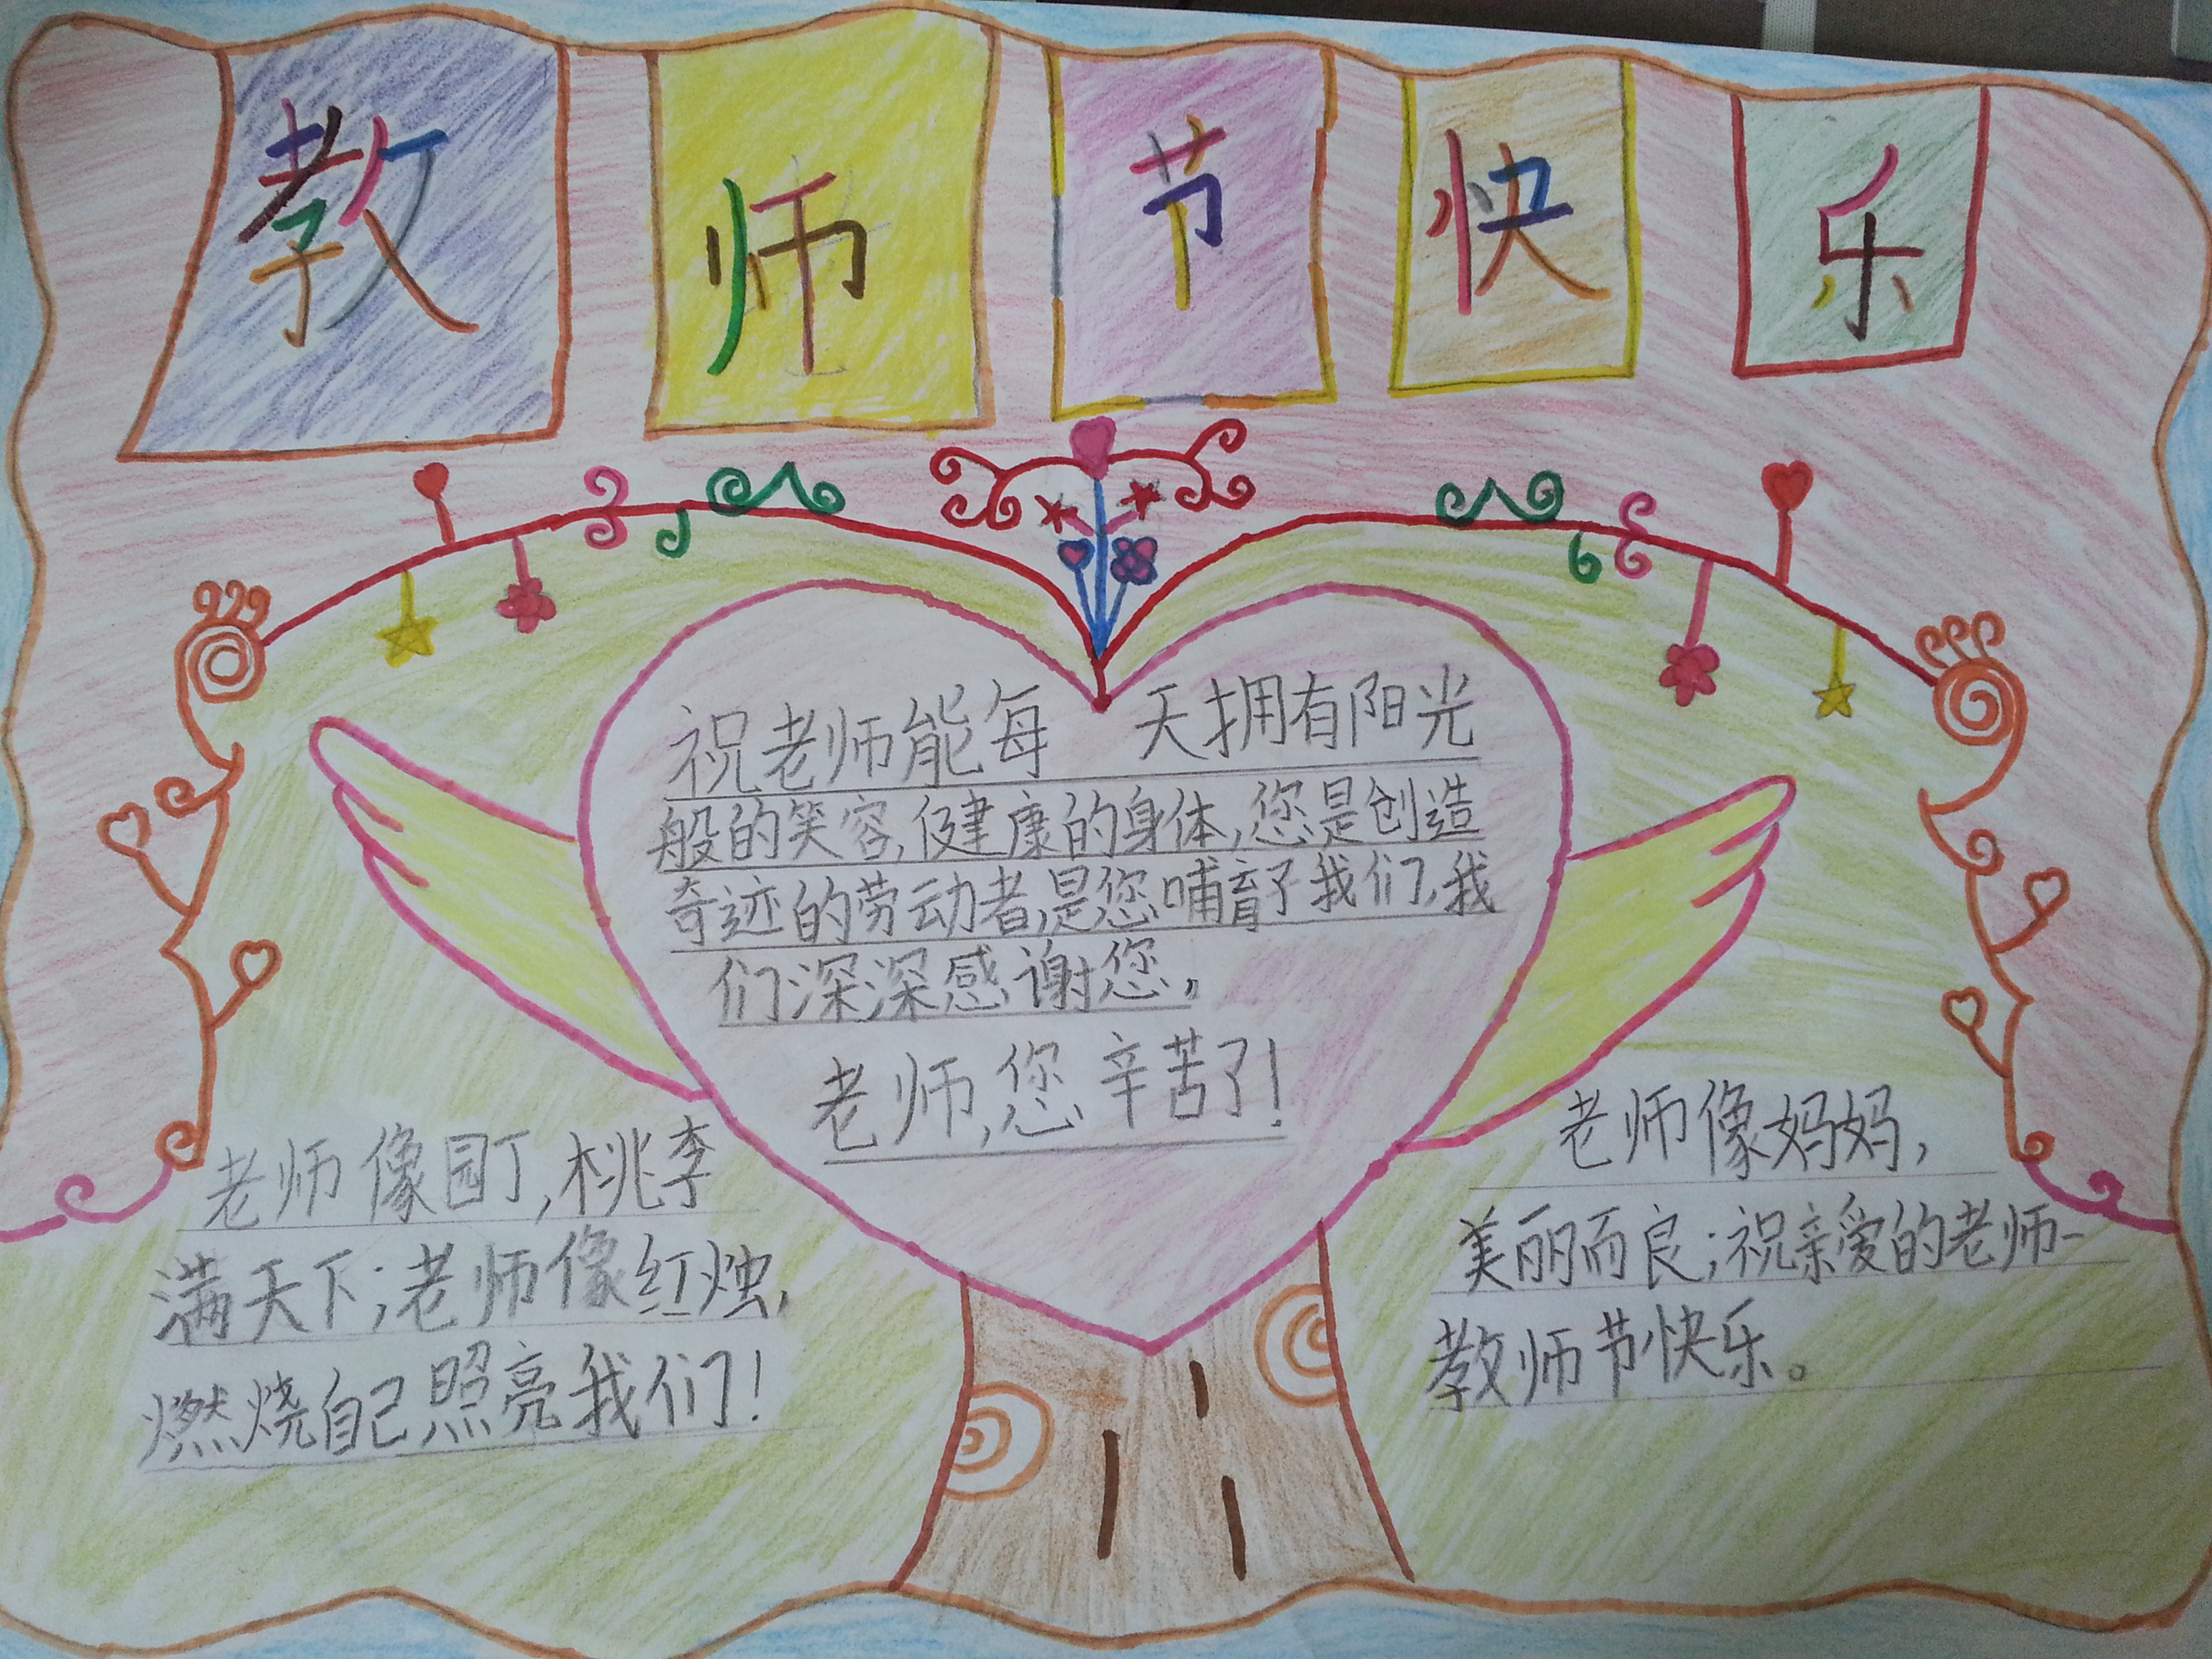 教师节快乐
祝老师能每 天拥有阳光
般的笑容,健康的身体,您是创造
奇迹的劳动者,是您哺育了我们,我
们深深感谢您。
老师,您辛苦了!
老师像园丁,桃李
满天下;老师像红烛,
燃烧自己照亮我们!
老师像妈妈,
美丽而良;祝亲爱的老师—
教师节快乐。